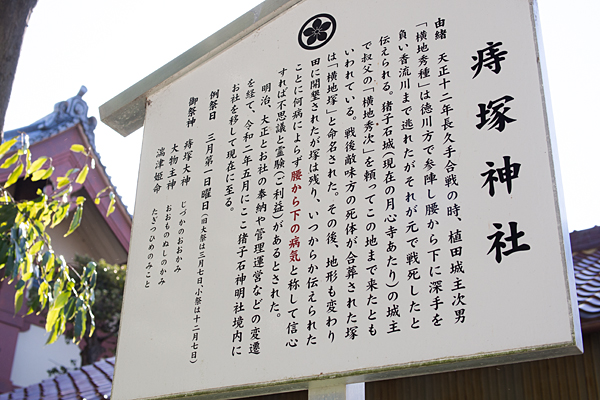 痔塚神社
由緒 天正十二年長久手合戦の時、植田城主次男
「横地秀種」は徳川方で参陣し腰から下に深手を
負い香流川まで逃れたがそれが元で戦死したと
伝えられる。猪子石城(現在の月心寺あたり)の城主
で叔父の「横地秀次」を頼ってこの地まで来たとも
いわれている。戦後敵味方の死体が合葬された塚
は「横地塚」と命名された。その後、地形も変わり
田に開墾されたが塚は残り、いつからか伝えられた
ことに何病によらず腰から下の病気と称して信心
すれば不思議と霊験(ご利益)があるとされた。
明治、大正とお社の奉納や管理運営などの変遷
を経て、令和二年五月にここ猪子石神明社境内に
お社を移して現在に至る。
例祭日 三月第一日曜日(旧大祭は三月七日小祭は十二月七日)
御祭神 痔塚大神 じづかのおおかみ
大物主神 おおものぬしのかみ
湍津姫命 たぎつひめのみこと